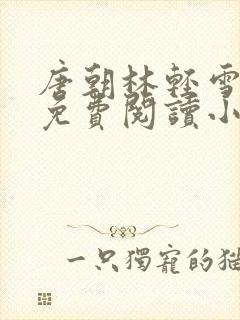 唐朝林輕雪
免費閱讀小
一只獨寵的貓